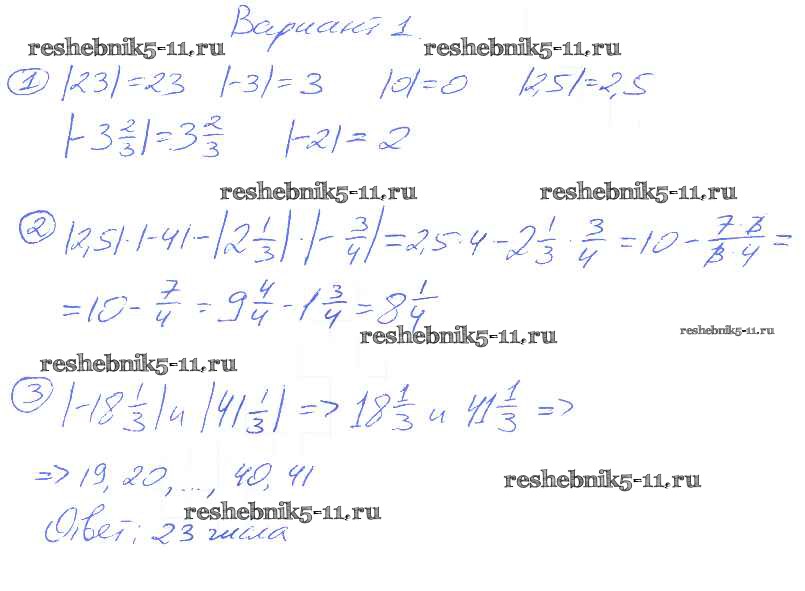 Вариант 1.
reshebnik5-11.ru reshebnik5-11.ru
① |23|=23 |-3|=3 |0|=0 |2,5|=2,5
|-3 2/3|=3 2/3 |-2|=2
reshebnik5-11.ru reshebnik5-11.ru
② |2,5|·|-4|-|2 1/3|·|-3/4|=2,5·4-2 1/3·3/4=10-(7·3)/(3·4)=
=10-7/4=9 4/4-1 3/4=8 1/4
reshebnik5-11.ru reshebnik5-11.ru
reshebnik5-11.ru
③ |-18 1/3| и |41 1/3| => 18 1/3 и 41 1/3 =>
=> 19, 20, ..., 40, 41
reshebnik5-11.ru
reshebnik5-11.ru
Ответ: 23 числа